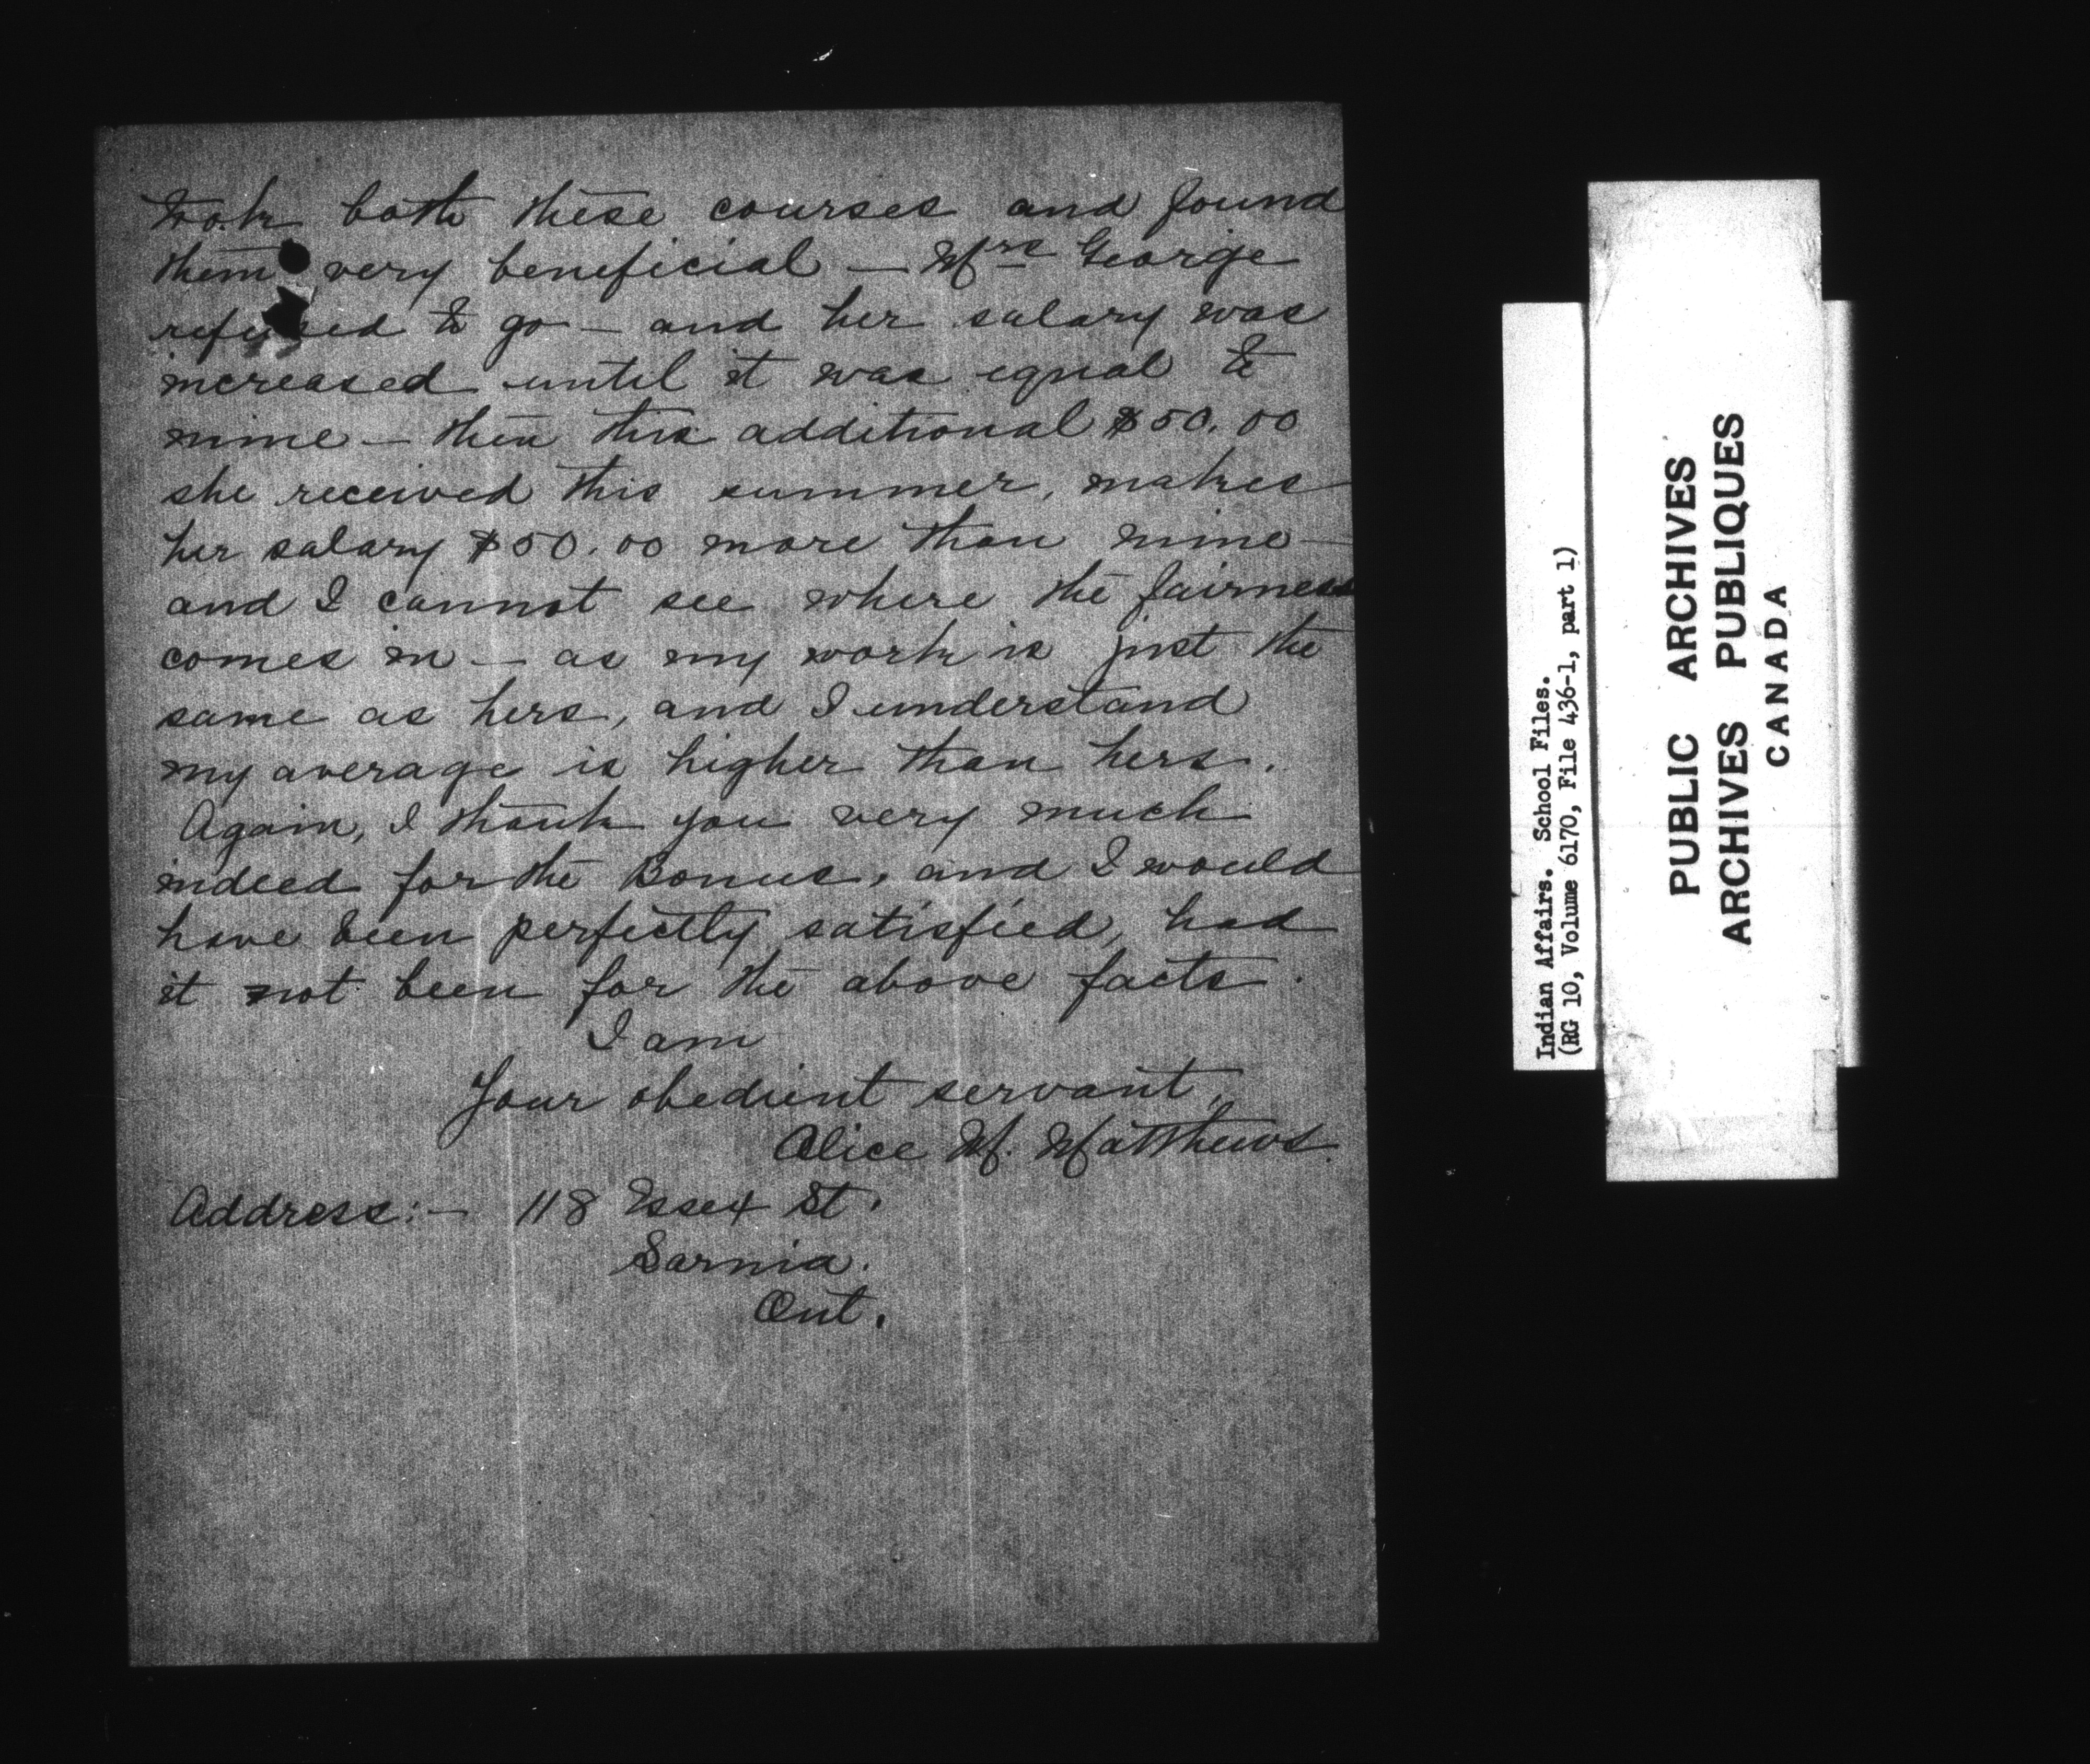 took both these courses and found
them very beneficial — Mrs George
refused to go — and her salary was
increased until it was equal to
mine — then this additional $50.00
she received this summer, makes
her salary $50.00 more than mine —
and I cannot see where the fairness
comes in — as my work is just the
same as hers, and I understand
my average is higher than hers.
Again, I thank you very much
indeed for the Bonus, and I would
have been perfectly satisfied, had
it not been for the above facts.
I am
Your obedient servant,
Alice M. Matthews.
Address:— 118 Essex St.
Sarnia.
Ont.
Indian Affairs. School Files.
(RG 10, Volume 6170, File 436-1, part 1)
PUBLIC ARCHIVES
ARCHIVES PUBLIQUES
CANADA